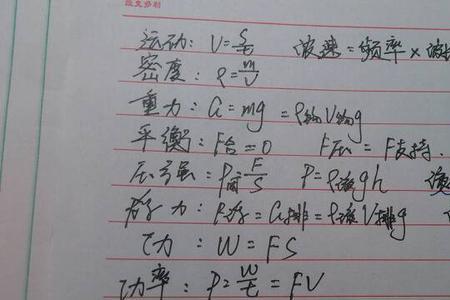 运动：V=S/t 波速=频率×波
密度：ρ=m/V
重力：G=mg=ρ物V物g
平衡：F合=0 F压=F支持.
压强：P固=F/S P=ρ液gh
浮力：F浮=G排=ρ液V排g
功：W=FS
功率：P=W/t=FV